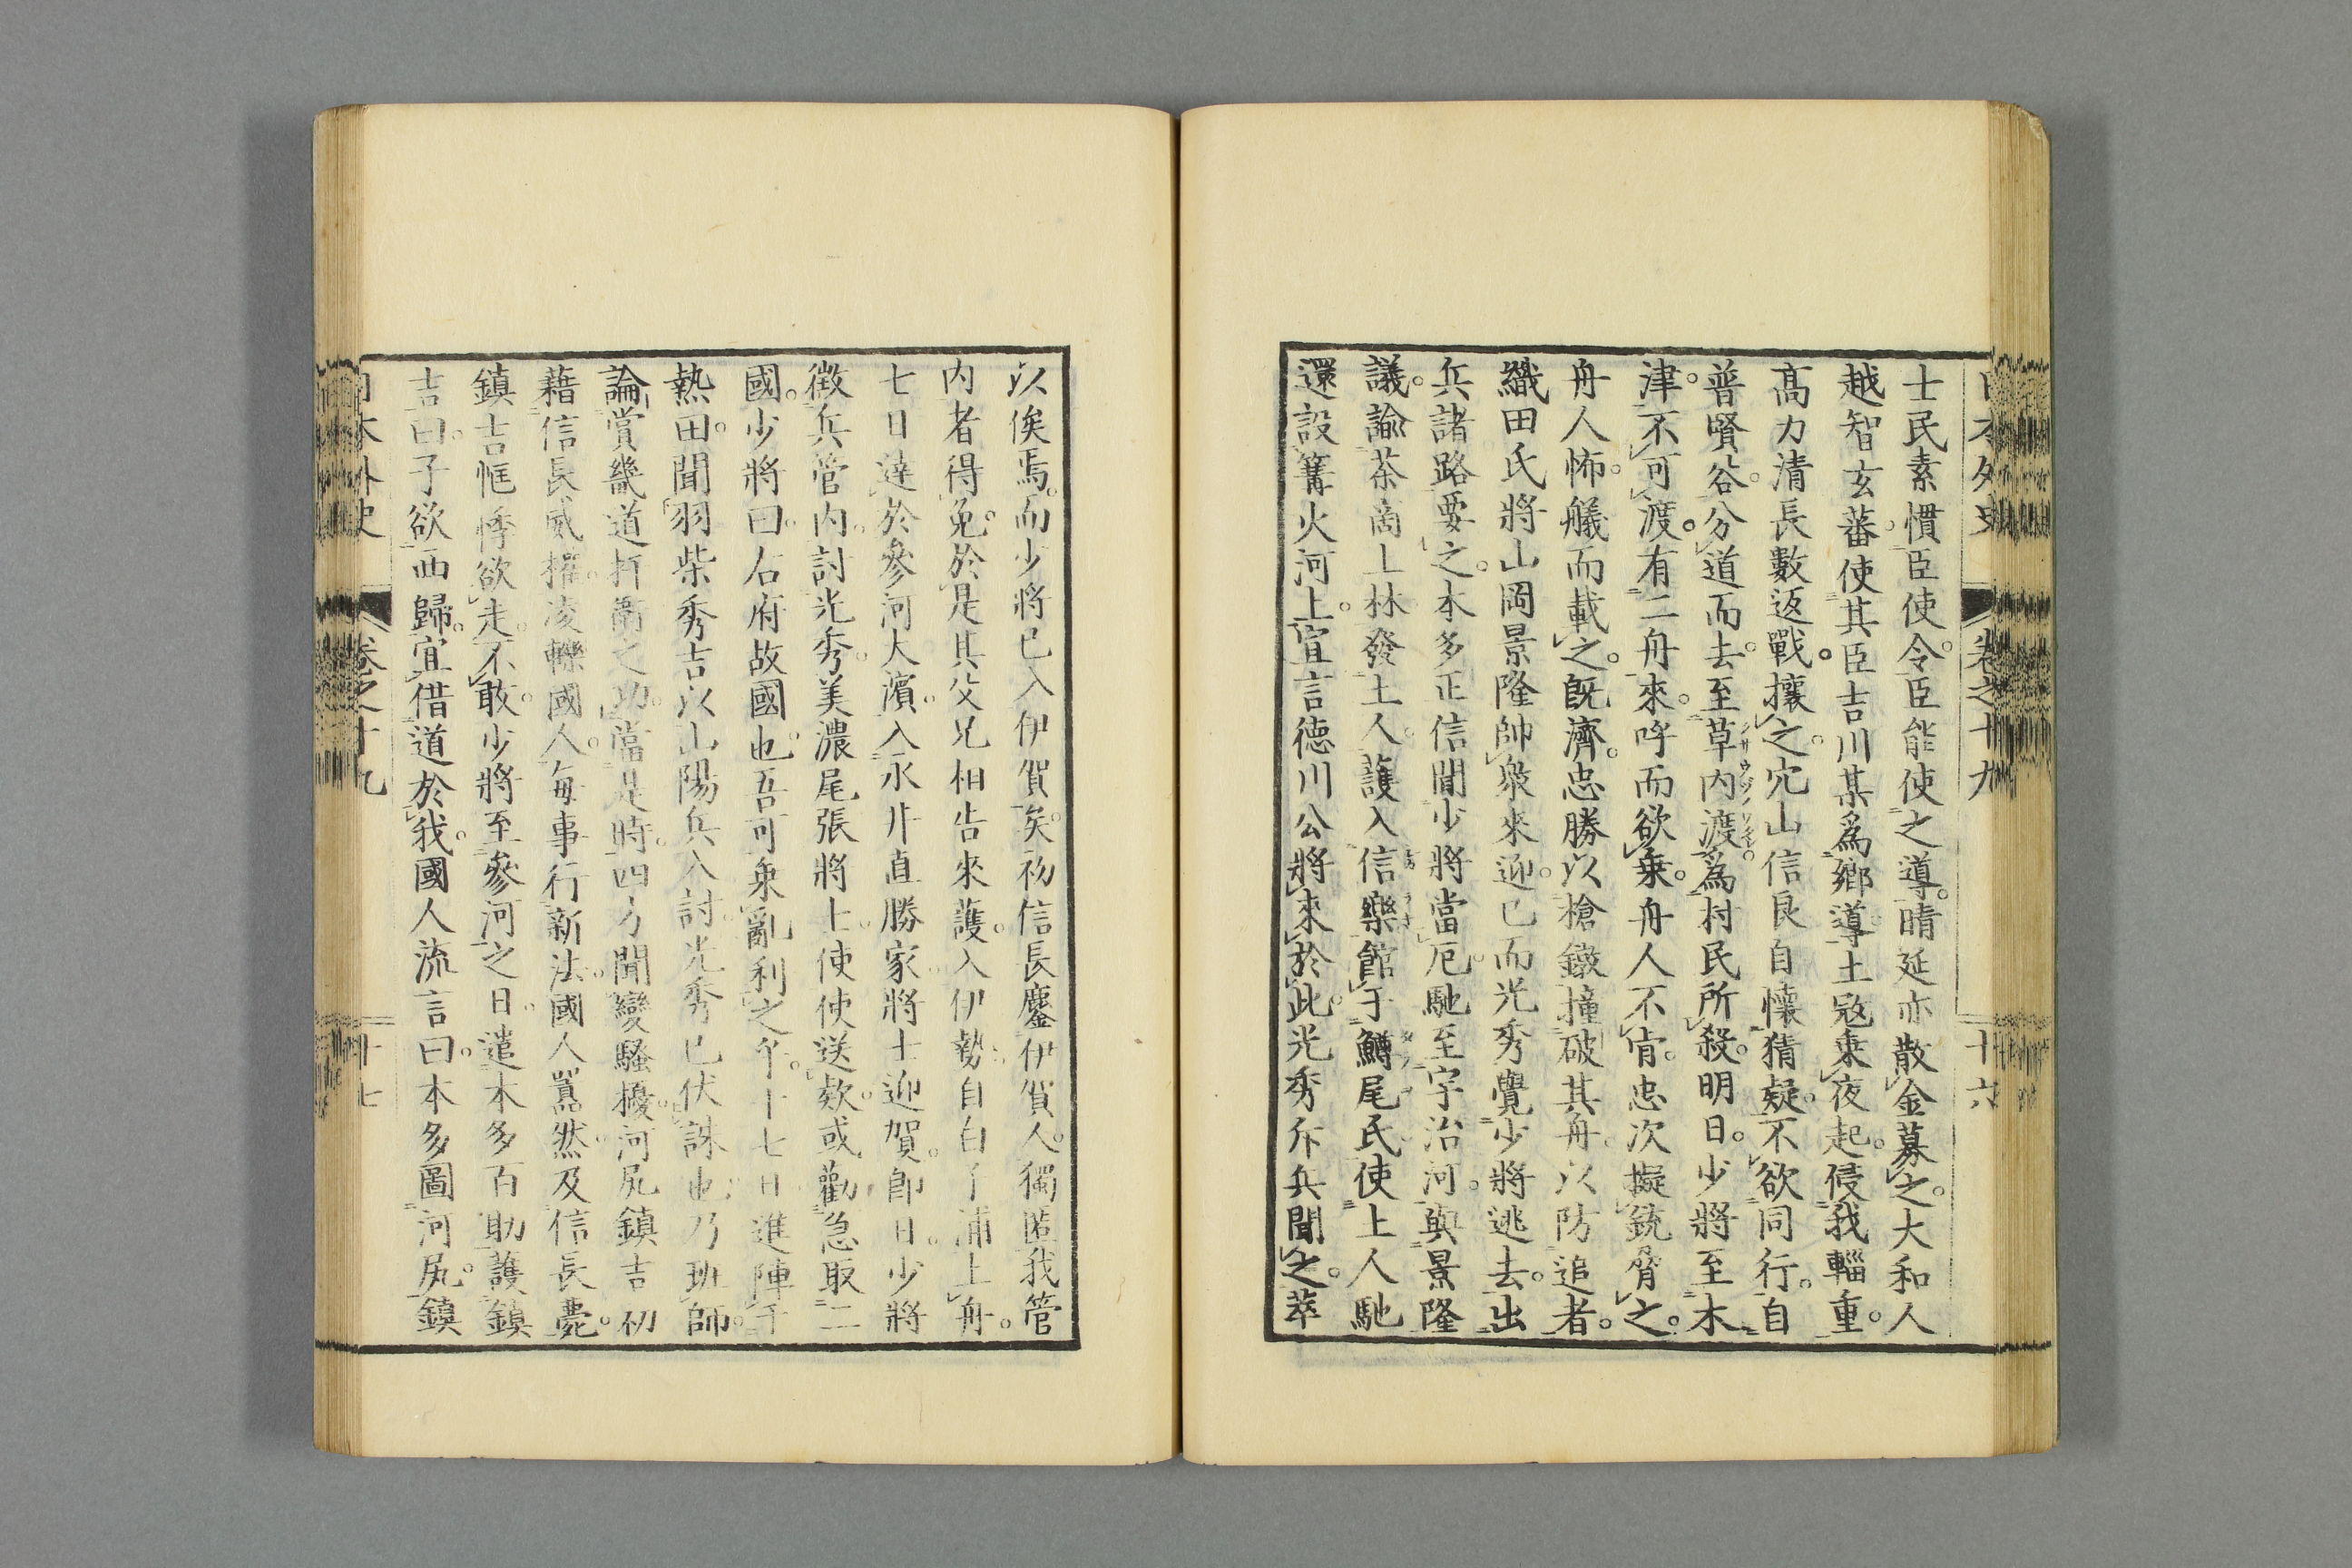 日本外史 卷之十九 十六
士民素慣臣使令。臣能使之導。晴延亦散金募之。大和人
越智玄蕃。使其臣吉川某爲鄉導。土寇乘夜起。侵我輜重。
高力清長數返戰。攘之。穴山信良自懷猜疑。不欲同行。自
普賢谷。分道而去。至草内渡。爲村民所殺。明日。少將至木
津。不可渡。有二舟來。呼而欲乘。舟人不肯。忠次擬銃脅之。
舟人怖。艤而載之。既濟。忠勝以槍鐓撞破其舟。以防追者。
織田氏將山岡景隆帥衆來迎。已而光秀覺少將逃去。出
兵諸路要之。本多正信聞少將當厄。馳至宇治河。與景隆
議。諭茶商上林發土人。護入信樂。館于鱒尾氏。使上人馳
還設篝火河上。宣言德川公將來於此。光秀斥兵聞之。萃
以俟焉。而少將已入伊賀矣。初信長鏖伊賀人。獨匿我管
内者得免。於是其父兄相告來護。入伊勢。自白子浦上舟。
七日達於參河大濱。入永井直勝家。將士迎賀。卽日。少將
徵兵管内。討光秀。美濃尾張將士。使使送款。或勸急取二
國。少將曰。右府故國也。吾可乘亂利之乎。十七日進陣于
熱田。聞羽柴秀吉以山陽兵入討。光秀已伏誅也。乃班師。
論賞畿道扞衞之功。當是時。四方聞變騷擾。河尻鎮吉初
藉信長威權。凌轢國人。每事行新法。國人囂然。及信長薨。
鎮吉恇悸欲走。不敢。少將至參河之日。遣本多百助護鎮
吉曰。子欲西歸。宜借道於我。國人流言曰。本多圖河尻。鎮
日本外史 卷之十九 十七